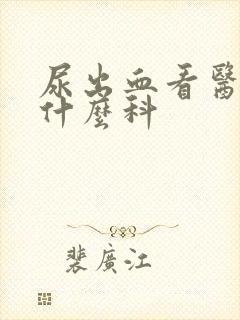 尿出血看醫
什麼科
裴廣江